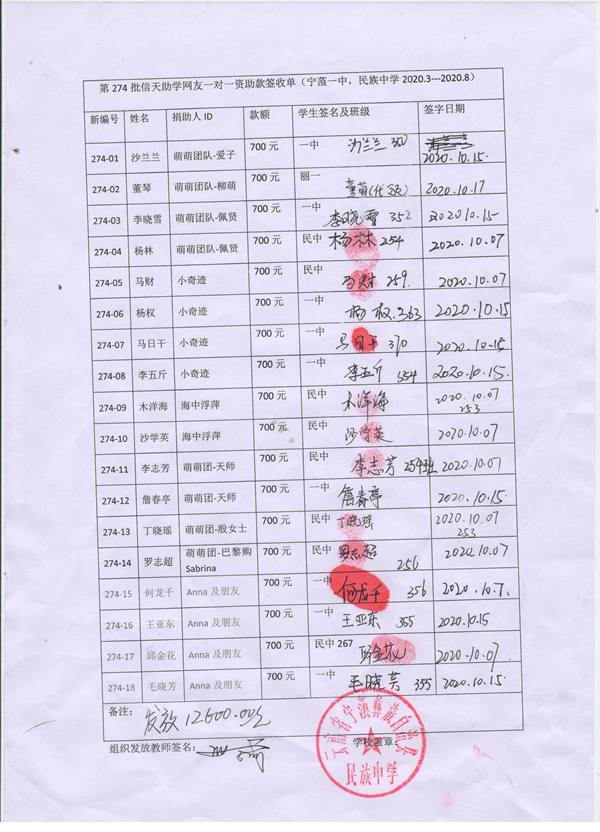 第 274 批信天助学网友一对一资助款签收单（宁蒗一中，民族中学 2020.3---2020.8）
新编号 姓名 捐助人 ID 款额 学生签名及班级 签字日期
274-01 沙兰兰 萌萌团队-爱子 700 元 一中 沙兰兰 350 2020.10.15.
274-02 董琴 萌萌团队-柳萌 700 元 丽一 董萌(代领) 2020.10.17
274-03 李晓雪 萌萌团队-佩贤 700 元 一中 李晓雪 352 2020.10.15
274-04 杨林 萌萌团队-佩贤 700 元 民中 杨林 254 2020.10.07
274-05 马财 小奇迹 700 元 民中 马财 259. 2020.10.07
274-06 杨权 小奇迹 700 元 一中 杨权.363 2020.10.15
274-07 马日干 小奇迹 700 元 一中 马日干 370 2020.10.15
274-08 李五斤 小奇迹 700 元 一中 李五斤 354 2020.10.15
274-09 木洋海 海中浮萍 700 元 民中 木洋海 2020.10.07
253
274-10 沙学英 海中浮萍 700 元 民中 沙学英 2020.10.07
274-11 李志芳 萌萌团-天师 700 元 民中 李志芳 254班 2020.10.07
274-12 詹春亭 萌萌团-天师 700 元 一中 詹春亭 2020.10.15.
274-13 丁晓瑶 萌萌团-殷女士 700 元 民中 丁晓瑶 2020.10.07
253
274-14 罗志超 萌萌团-巴黎购 700 元 民中 罗志超 256 2020.10.07
Sabrina
274-15 何龙千 Anna 及朋友 700 元 一中 何龙千 356 2020.10.7.
274-16 王亚东 Anna 及朋友 700 元 一中 王亚东 355 2020.10.15
274-17 邱金花 Anna 及朋友 700 元 民中 267 邱金花 2020.10.07.
274-18 毛晓芳 Anna 及朋友 700 元 一中 毛晓芳 355 2020.10.15.
备注： 发放12600.00元
组织发放教师签名： 学校盖章：
云南省宁蒗彝族自治县
民族中学